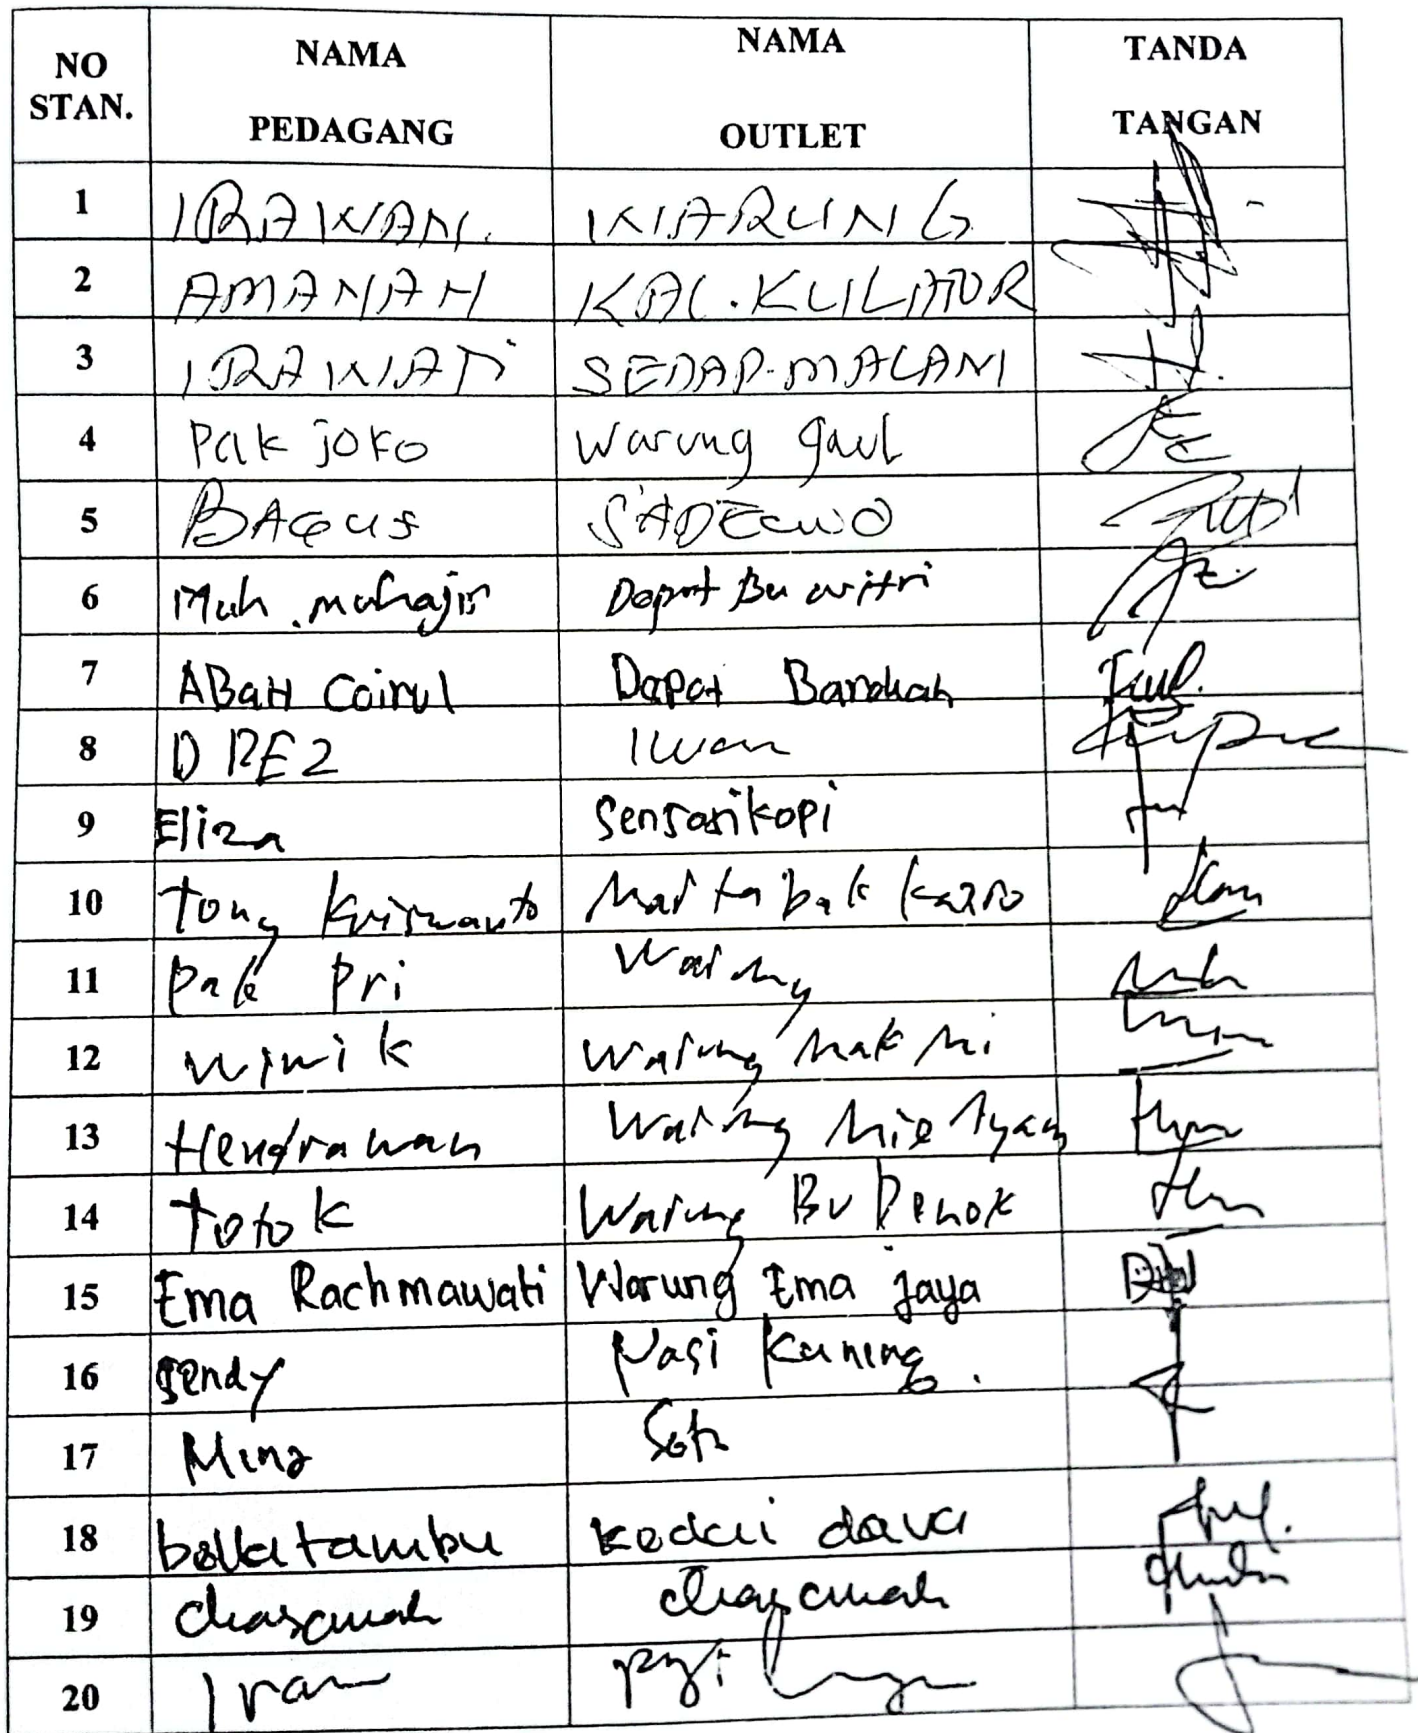 NO STAN. NAMA PEDAGANG NAMA OUTLET TANDA TANGAN
1 IRAWAN. WARUNG
2 AMANAH KAL.KULATOR
3 IRAWATI SEDAP-MALAM
4 Pak joko Warung gaul
5 BAGUS SADEWO
6 Muh. muhajir Bu witri
7 ABAH Coirul
8 DREZ Iwan
9 Eliza Sensasikopi
10 Tony Kriswanto Martabak
11 Pak Pri Warung
12 Winik Warung Mak Mi
13 Hendrawan Warung Mie Ayam
14 Totok Warung Bu Denok
15 Ema Rachmawati Warung Ema jaya
16 Sendy Nasi Kuning.
17 Soto
18 kedai
19
20